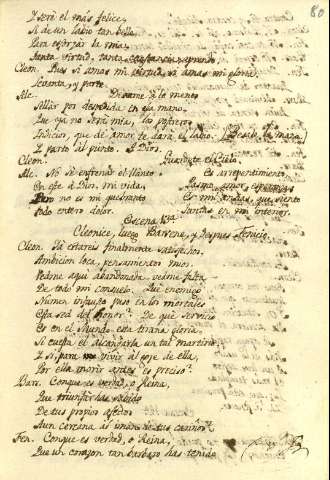 80
Y seré el más felice,
Si de un labio tan bello
Para esforzar la mia,
Tanta virtud, tanta constancia aprendo.
Cleon. Pues si amas mi virtud, si amas mi gloria,
Levanta, y parte.
Alc. Dexame à lo menos
Sellar por despedida en esa mano,
Que ya no será mia, los postreros
Indicios, que de amor te dara el labio. Besale la mano.
Y parto al punto. A Dios.
Cleon. Guardete el Cielo.
Alc. No sé enfrenar el llanto. Es arrepentimiento
En este à Dios, mi vida,
Pero no es mi quebranto Es mi ansias, que siento
todo entero dolor. Tantas en mi interior.
Escena 13ª
Cleonice, luego Barsene, y despues Fenicio.
Cleon. Ya estareis finalmente satisfechos,
Ambicion loca, pensamientos mios.
Vedme aqui abandonada, vedme falta
De todo mi consuelo. Qué enemigo
Numen infausto puso en los mortales
Esta sed del honor? De qué servicio
Es en el Mundo esta tirana gloria,
Si cuesta el alcanzarla un tal martirio,
Y si, para vivir al goze de ella,
Por ella morir antes es preciso?
Bars. Conque es verdad, o Reina,
Que triunfar has sabido
De tus propios afectos
Aun cercana al imán de tus cariños?
Fen. Conque es verdad, o Reina,
Que un corazon tan barbaro has tenido